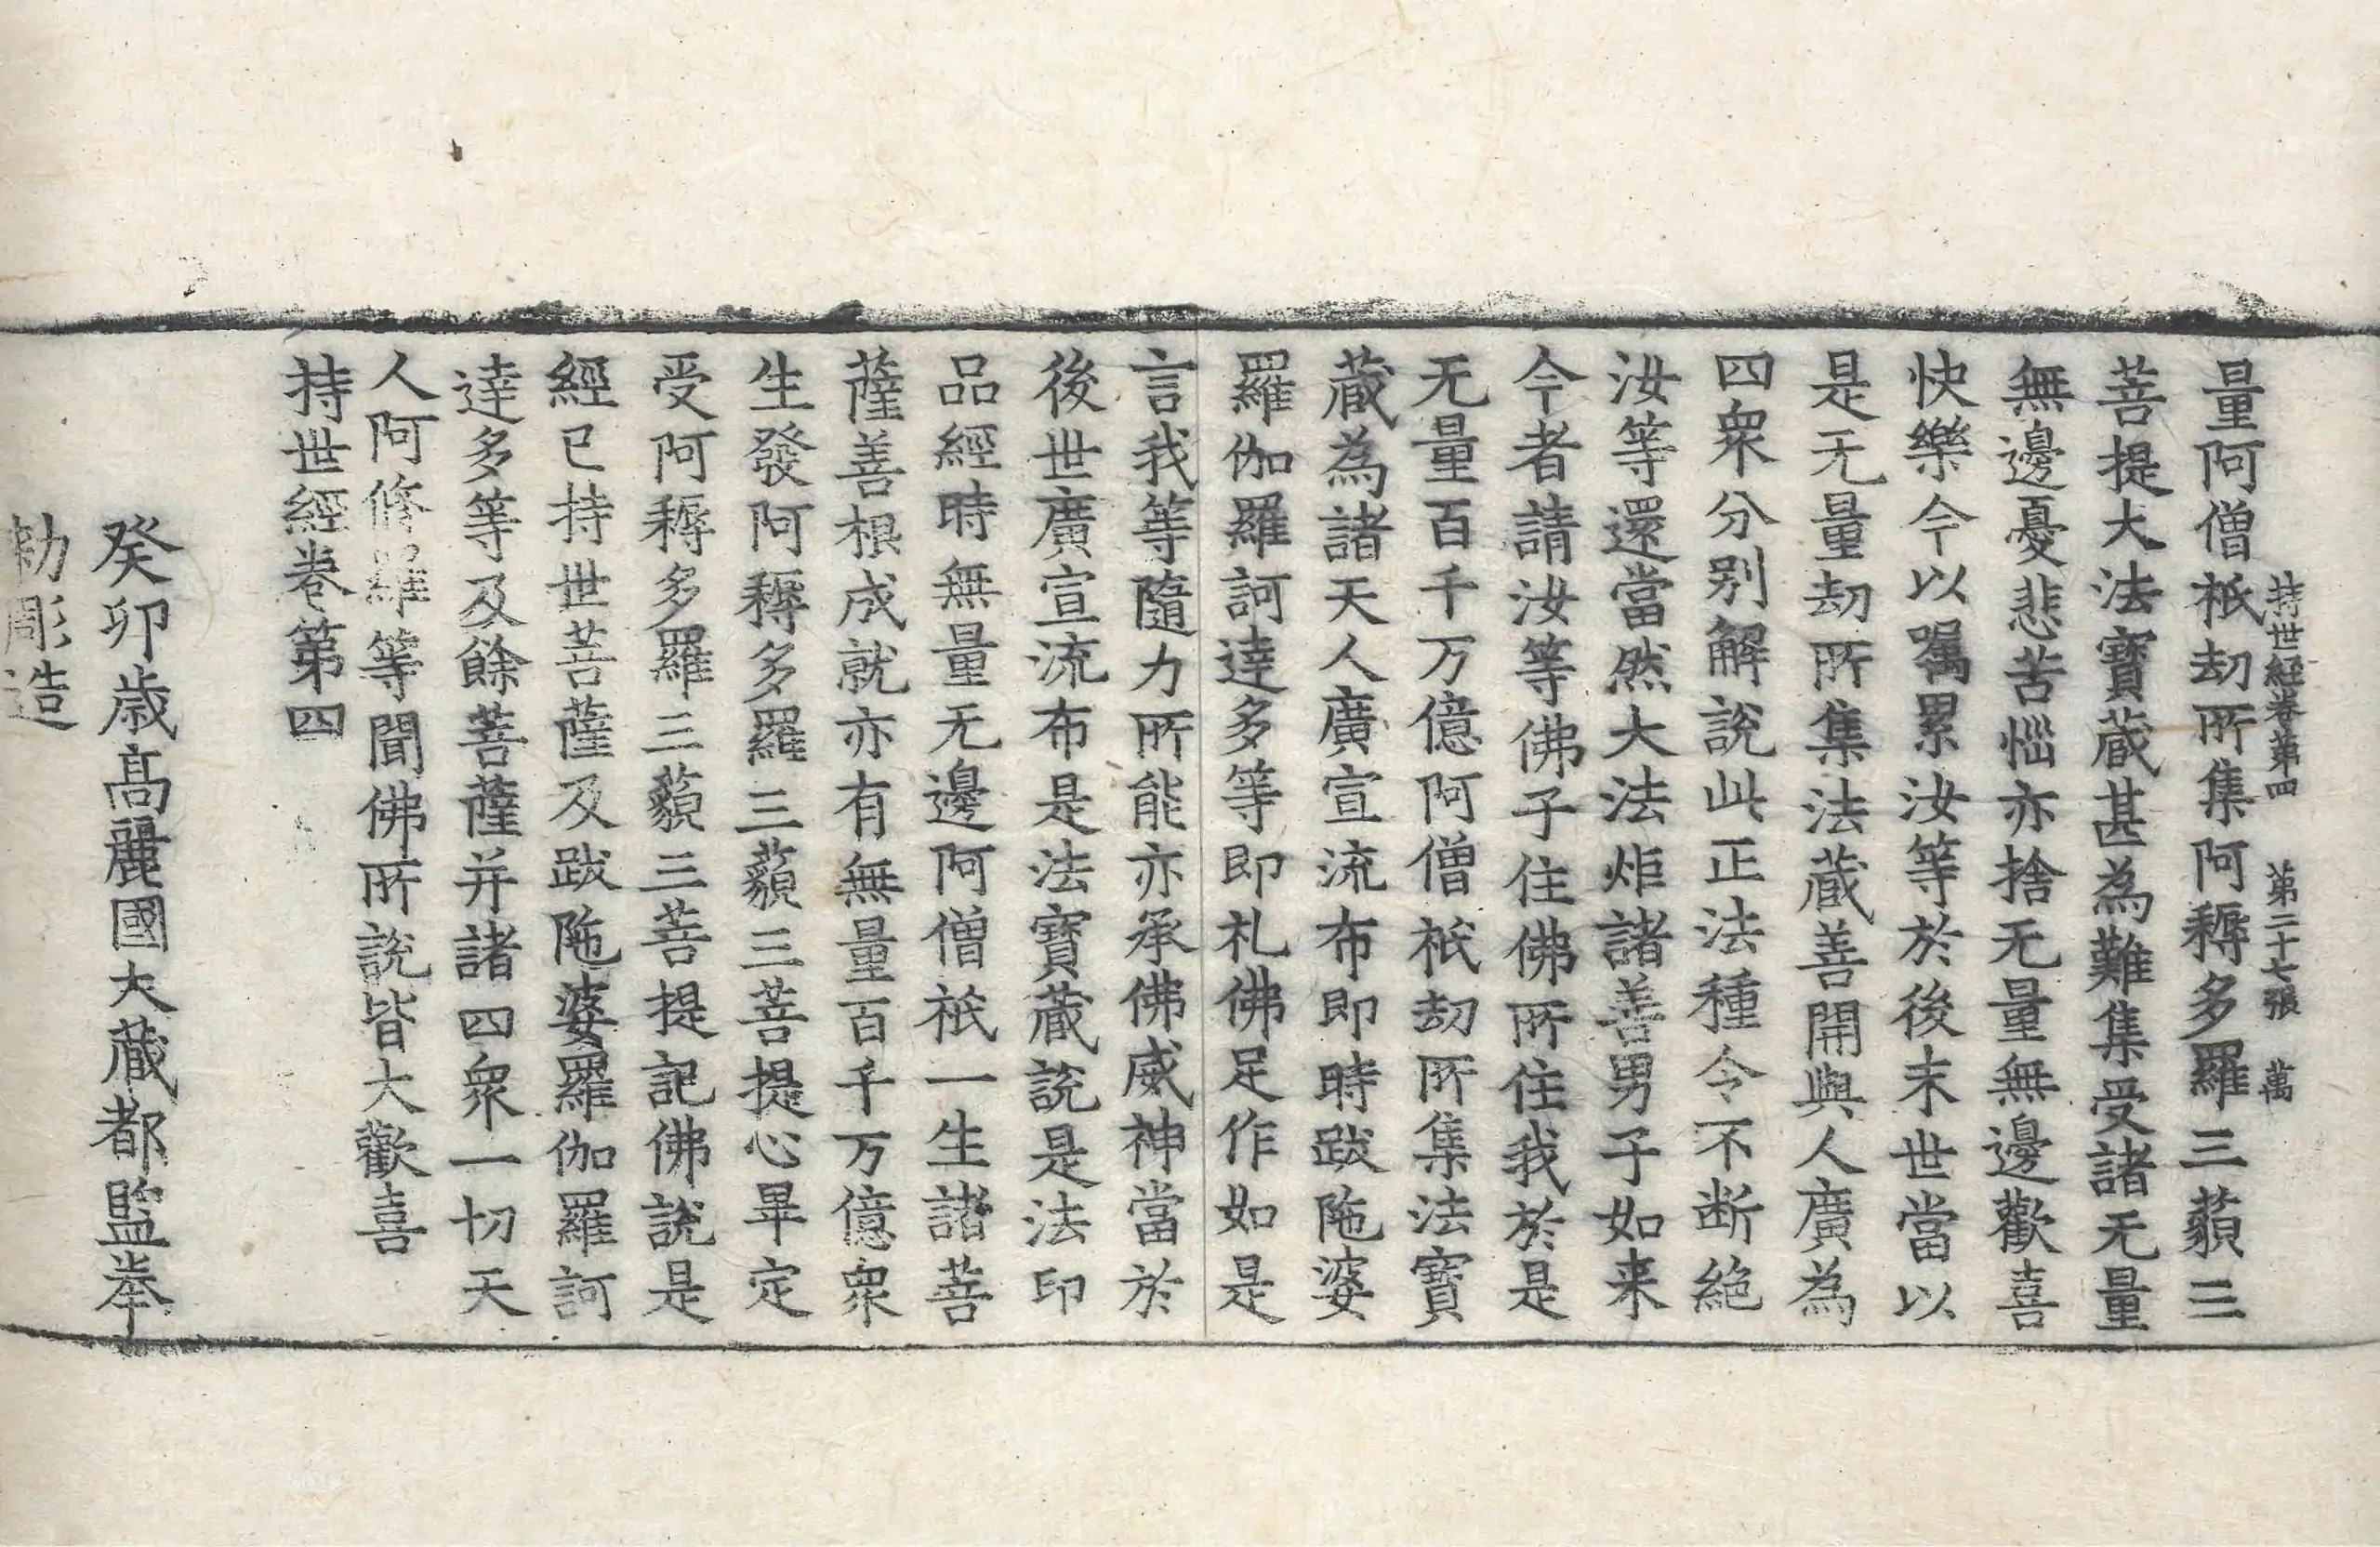 持世経卷第四 第二十七張 萬
量阿僧祇劫所集阿耨多羅三藐三
菩提大法寶蔵甚為難集受諸无量
無邊憂悲苦惱亦捨无量無邊歡喜
快樂今以囑累汝等於後末世當以
是无量劫所集法蔵善開與人廣為
四衆分別解説此正法種令不断絶
汝等還當然大法炬諸善男子如来
今者請汝等佛子住佛所住我於是
无量百千万億阿僧祇劫所集法寶
蔵為諸天人廣宣流布即時跋陁婆
羅伽羅訶達多等即礼佛足作如是
言我等隨力所能亦承佛威神當於
後世廣宣流布是法寶蔵説是法印
品經時無量无邊阿僧祇一生諸菩
薩善根成就亦有無量百千万億衆
生發阿耨多羅三藐三菩提心畢定
受阿耨多羅三藐三菩提記佛説是
經已持世菩薩及跋陁婆羅伽羅訶
達多等及餘菩薩并諸四衆一切天
人阿修羅等聞佛所説皆大歡喜
持世經卷第四
癸卯歳高麗國大蔵都監奉
勅彫造